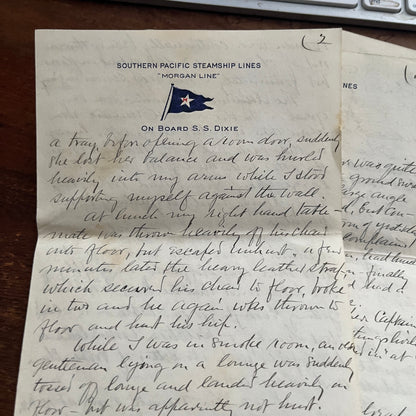 (2
SOUTHERN PACIFIC STEAMSHIP LINES
"MORGAN LINE"
ON BOARD S. S. DIXIE
a tray, before opening a room door, suddenly
she lost her balance and was hurled
heavily into my arms while I stood
supporting myself against the wall.
At lunch my right hand table
mate was thrown heavily off his chair
onto floor, but escaped unhurt. A few
minutes later the heavy leather strap
which secured his chair to floor, broke
in two and he again was thrown to
floor and hurt his hip.
While I was in smoke room, an old
gentleman lying on a lounge was suddenly
tossed off lounge and landed heavily on
floor - but was apparently not hurt
LINES
was quite
ground
angle
finally
Captain
at